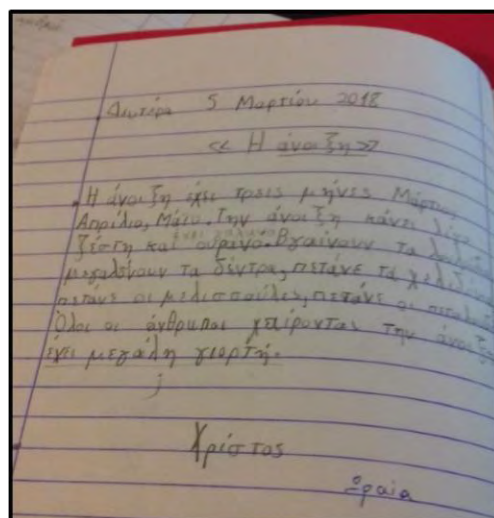 Δευτέρα 5 Μαρτίου 2018
<< Η άνοιξη >>
Η άνοιξη έχει τρεις μήνες Μάρτιο,
Απρίλιο, Μάιο. Την άνοιξη κάνει λίγο
έχει γαλανό
ζέστη και ουρανό. Βγαίνουν τα
μεγαλώνουν τα δέντρα, πετάνε τα
πετάνε οι μελισσούλες, πετάνε οι
Όλοι οι άνθρωποι χαίρονται την άνοιξη
έχει μεγάλη γιορτή.
Χρίστος
Ωραία